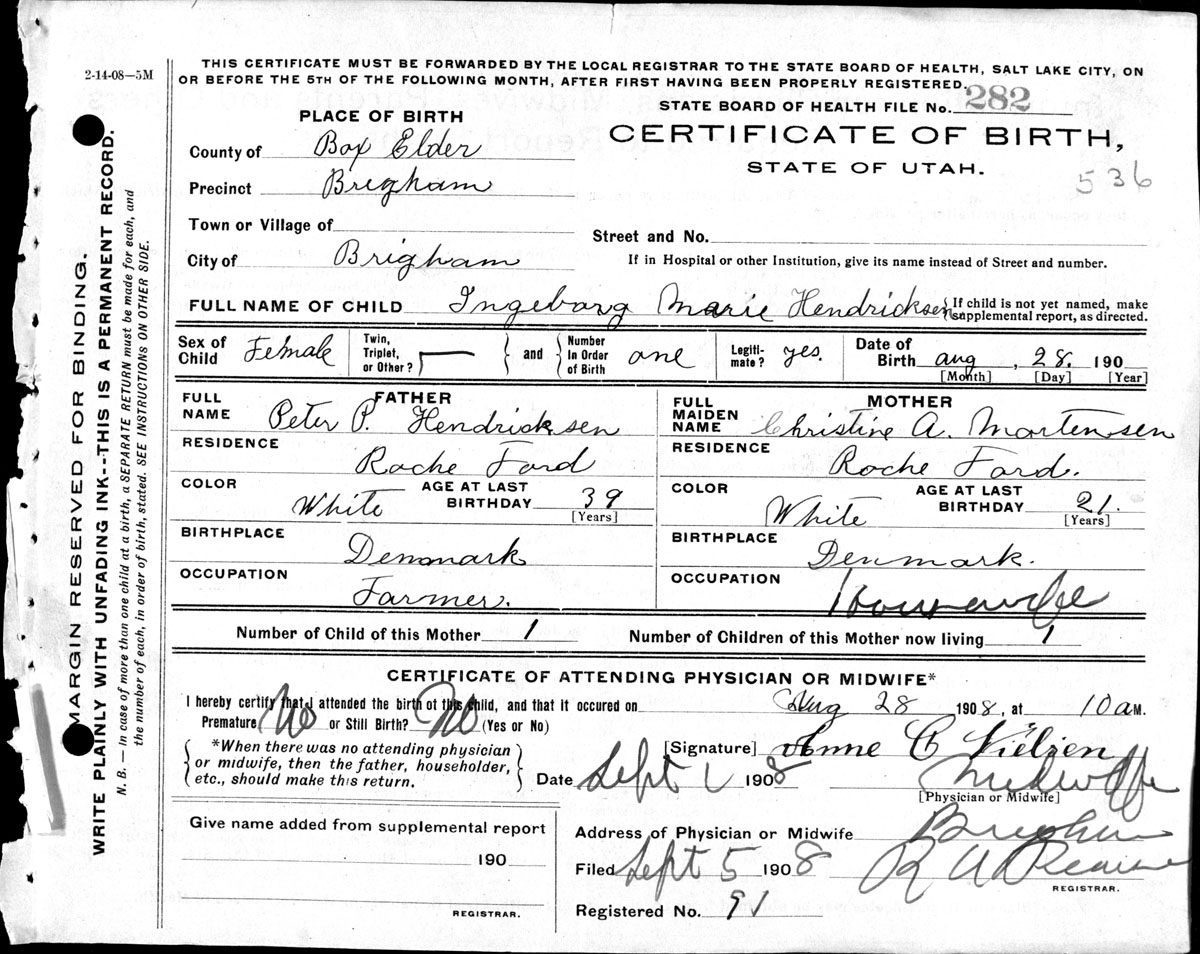 2-14-08—5M
THIS CERTIFICATE MUST BE FORWARDED BY THE LOCAL REGISTRAR TO THE STATE BOARD OF HEALTH, SALT LAKE CITY, ON
OR BEFORE THE 5TH OF THE FOLLOWING MONTH, AFTER FIRST HAVING BEEN PROPERLY REGISTERED.
STATE BOARD OF HEALTH FILE No. 282
PLACE OF BIRTH
CERTIFICATE OF BIRTH,
STATE OF UTAH.
536
County of Box Elder
Precinct Brigham
Town or Village of
Street and No.
City of Brigham
If in Hospital or other Institution, give its name instead of Street and number.
FULL NAME OF CHILD Ingeborg Marie Hendricksen { If child is not yet named, make supplemental report, as directed.
Sex of Child Female Twin, Triplet, or Other? — } and { Number In Order of Birth one Legiti-mate? yes. Date of Birth aug, 28. 190
[Month] [Day] [Year]
FATHER
FULL NAME Peter P. Hendricksen
RESIDENCE
Roche Ford
COLOR White AGE AT LAST BIRTHDAY 39
[Years]
BIRTHPLACE
Denmark
OCCUPATION
Farmer.
MOTHER
FULL MAIDEN NAME Christine A. Mortensen
RESIDENCE
Roche Ford.
COLOR White AGE AT LAST BIRTHDAY 21.
[Years]
BIRTHPLACE
Denmark.
OCCUPATION
Housewife
Number of Child of this Mother 1 Number of Children of this Mother now living 1
CERTIFICATE OF ATTENDING PHYSICIAN OR MIDWIFE*
I hereby certify that I attended the birth of this child, and that it occured on Aug 28 1908, at 10 a M.
Premature No or Still Birth? No (Yes or No)
*When there was no attending physician
or midwife, then the father, householder,
etc., should make this return.
[Signature] Anne C Nielsen
Date Sept 1 1908 Midwife
[Physician or Midwife]
Give name added from supplemental report
190
REGISTRAR.
Address of Physician or Midwife Brigham
Filed Sept 5 1908 R A Pearse
REGISTRAR.
Registered No. 91
MARGIN RESERVED FOR BINDING.
WRITE PLAINLY WITH UNFADING INK--THIS IS A PERMANENT RECORD.
N. B. — In case of more than one child at a birth, a SEPARATE RETURN must be made for each, and
the number of each, in order of birth, stated. SEE INSTRUCTIONS ON OTHER SIDE.